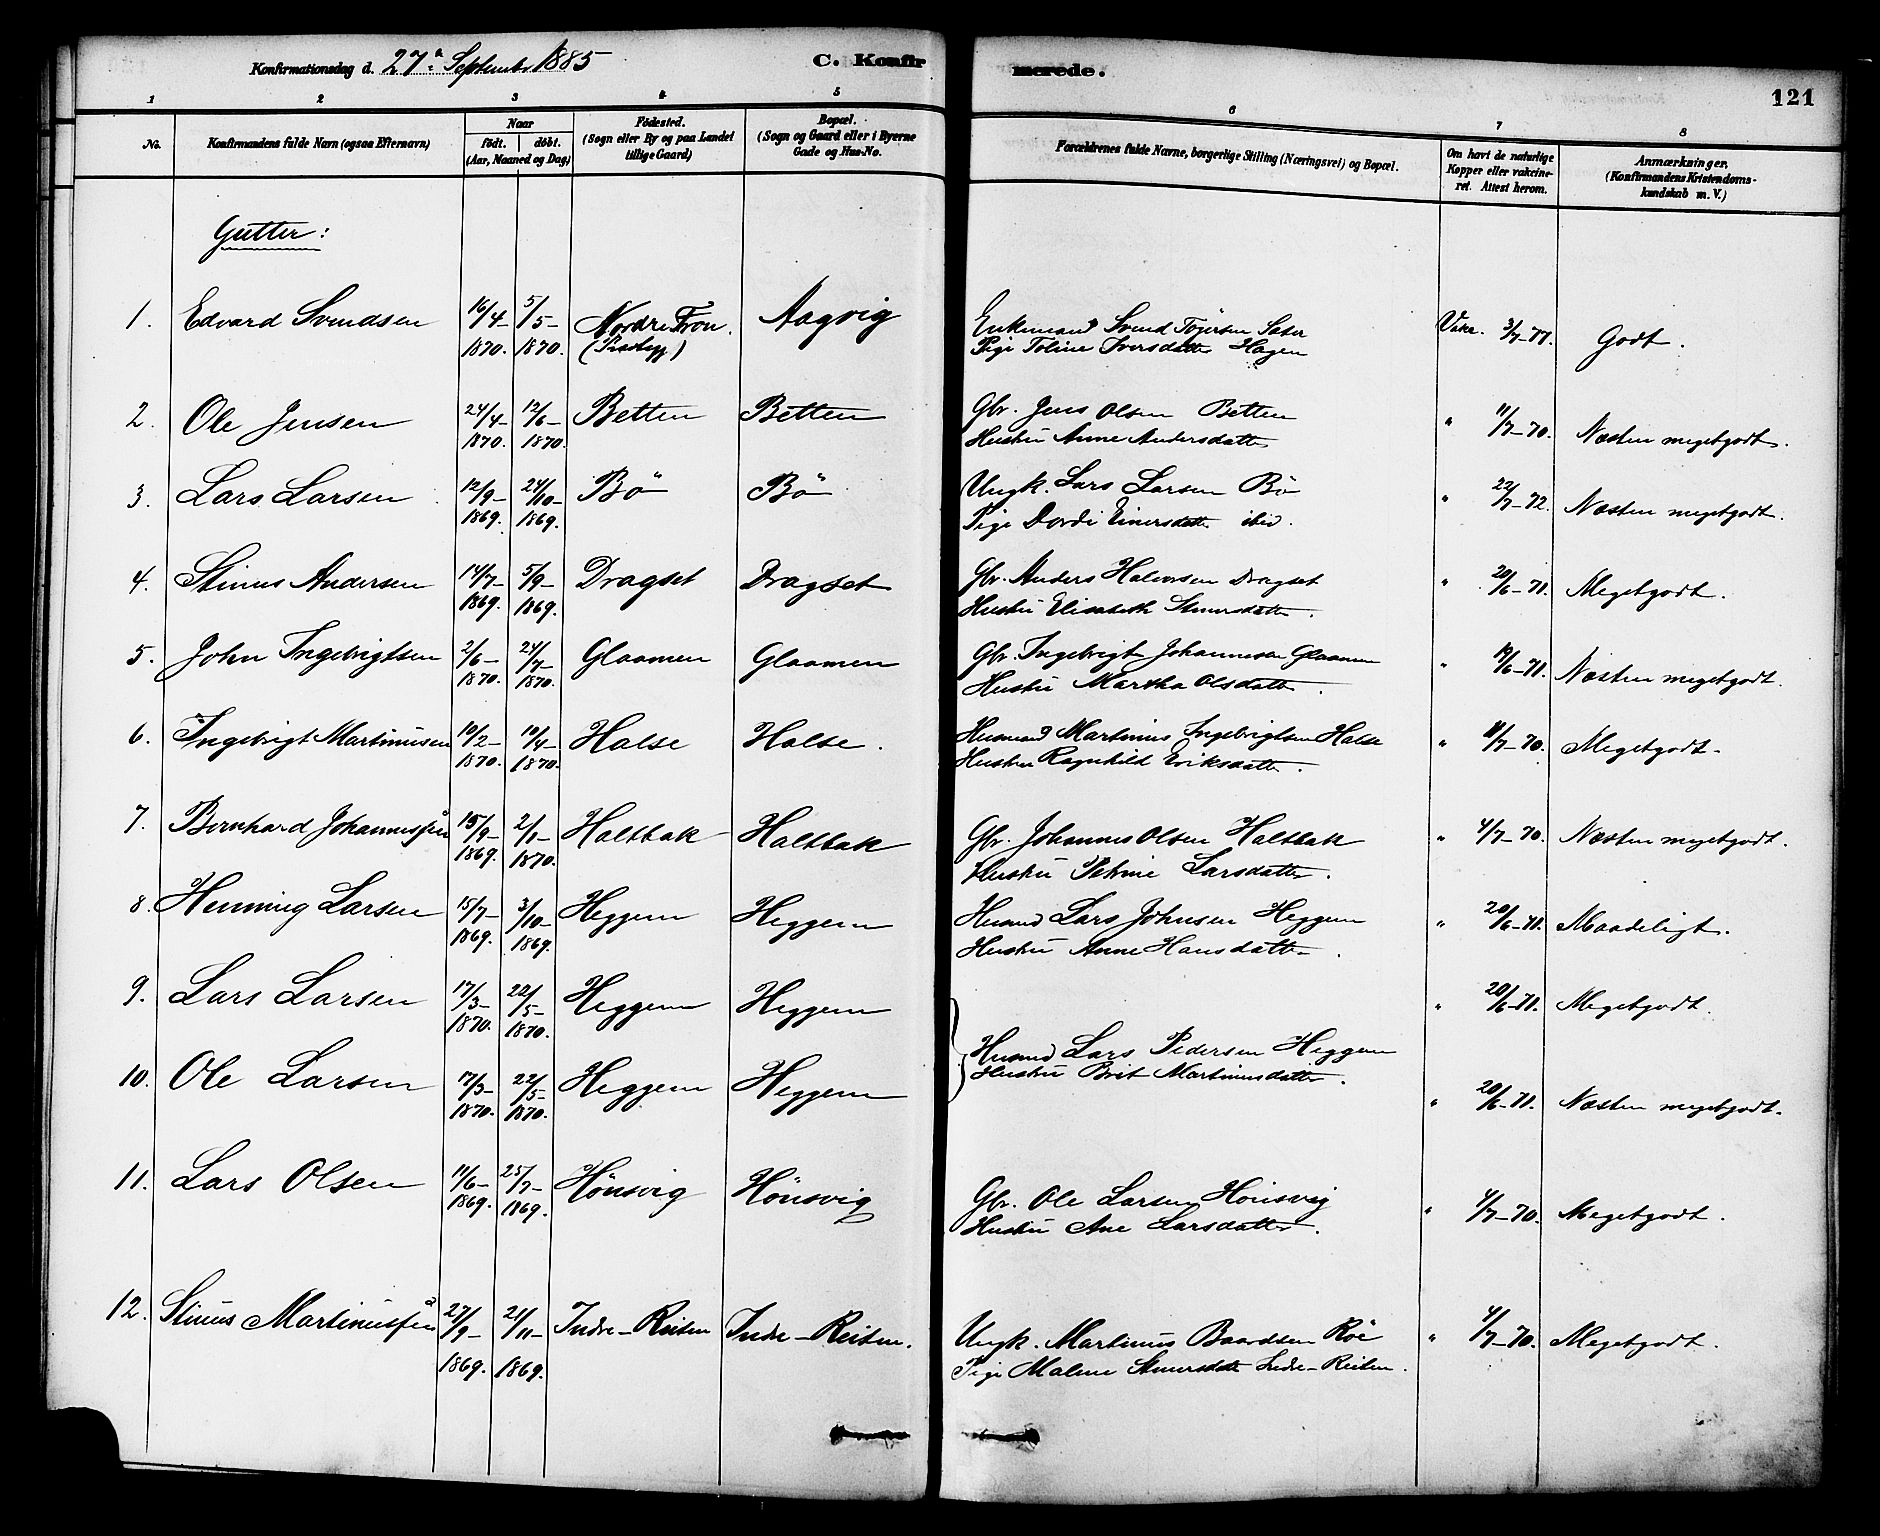 Konfirmationsdag d. 27de Septembr 1885
C. Konfirmerede.
121
1 2 3 4 5 6 7 8
No.
Konfirmandens fulde Navn (ogsaa Efternavn)
Naar født. døbt. (Aar, Maaned og Dag)
Fødested. (Sogn eller By og paa Landet tillige Gaard)
Bopæl. (Sogn og Gaard eller i Byerne Gade og Hus-No.
Forældrenes fulde Navne, borgerlige Stilling (Næringsvei) og Bopæl.
Om havt de naturlige Kopper eller vakcineret. Attest herom.
Anmærkninger. (Konfirmandens Kristendomskundskab m. V.)
Gutter:
1. Edvard Svendsen 16/4-1870. 5/5-1870. Nordre Fron. Aagvig Enkemand Svend Vakc. 3/7-77. Godt.
Pige Toline Iversdatter Hagen
2. Ole Jensen 24/4-1870. 12/6-1870. Betten Betten Gbr. Jens Olsen Betten " 11/7-70. Næsten megetgodt.
Hustru Anne Andersdatter
3. Lars Larsen 12/9-1869. 24/10-1869. Bö Bö Ungk. Lars Larsen Bö " 22/7-72. Næsten megetgodt.
Pige Dordi Einersdatter ibid.
4. Stinus Andersen 14/7-1869. 5/9-1869. Dragset Dragset Gbr. Anders Halvorsen Dragset " 20/6-71. Megetgodt.
Hustru Elisabeth
5. John Ingebrigtsen 2/6-1870. 24/7-1870. Glaamen Glaamen Gbr. Ingebrigt Johannesen Glaamen " 19/6-71. Næsten megetgodt.
Hustru Martha Olsdatter.
6. Ingebrigt Martinusen 10/2-1870. 10/4-1870. Halse Halse. Husmand Martinus Ingebrigtsen Halse " 11/7-70. Megetgodt.
Hustru Ragnhild Eriksdatter.
7. Bernhard Johannessen 15/9-1869. 2/1-1870. Haltbak Haltbak Gbr. Johannes Olsen Haltbak " 4/7-70. Næsten megetgodt.
Hustru Petrine Larsdatter.
8. Henning Larsen 15/7-1869. 3/10-1869. Heggem Heggem Husmd Lars Johnsen Heggem " 20/6-71. Maadeligt.
Hustru Anne Hansdatter.
9. Lars Larsen 17/3-1870. 22/5-1870. Heggem Heggem " 20/6-71. Megetgodt.
Husmd Lars Pedersen Heggem
Hustru Brit Martinusdatter.
10. Ole Larsen 17/3-1870. 22/5-1870. Heggem Heggem " 20/6-71. Næsten megetgodt.
11. Lars Olsen 11/6-1869. 25/7-1869. Hönsvig Hönsvig Gbr. Ole Larsen Hönsvig " 4/7-70. Megetgodt.
Hustru Ane Larsdatter.
12. Stinus Martinussen 27/9-1869. 21/11-1869. Indre-Reiten Indre-Reiten. Ungk. Martinus Baardsen Röe " 4/7-70. Megetgodt.
Pige Malene Indre-Reiten.